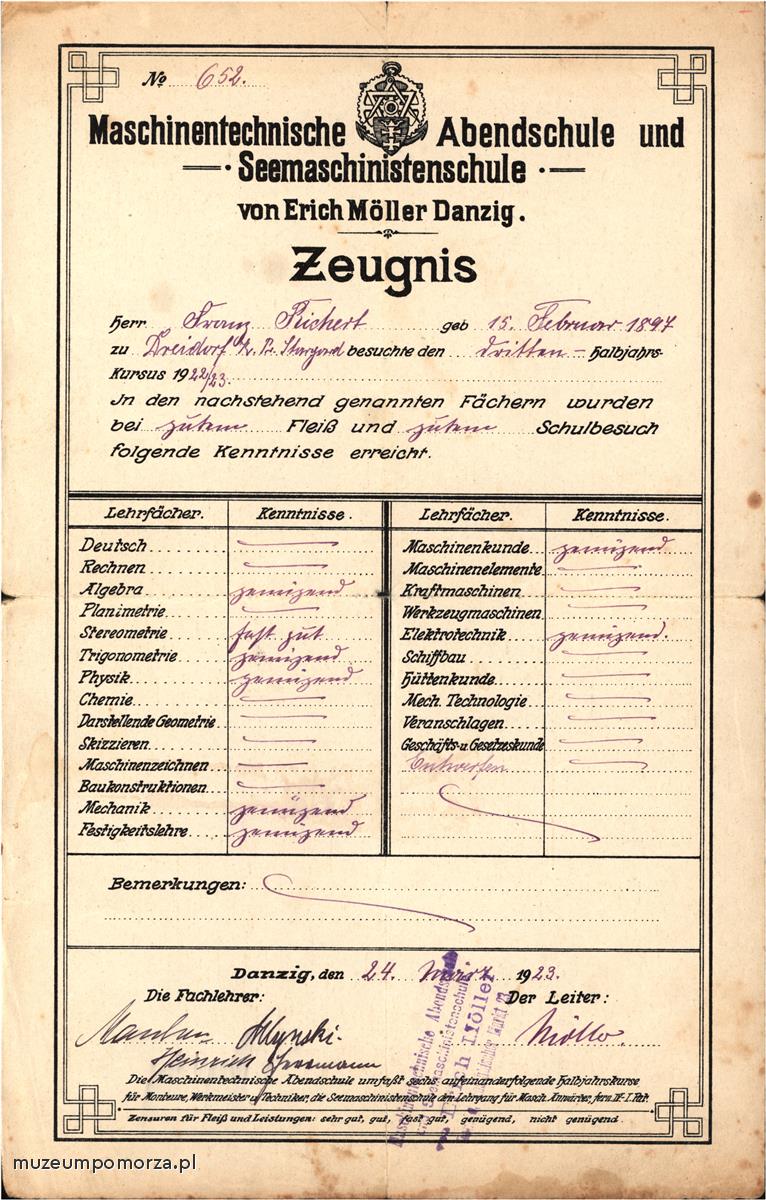 No 652.
Maschinentechnische Abendschule und
Seemaschinistenschule
von Erich Möller Danzig.
Zeugnis
Herr Franz Richert geb 15. Februar 1897
zu Dreidorf Pr. Stargard besuchte den dritten - Halbjahrs-
Kursus 1922/23.
In den nachstehend genannten Fächern wurden
bei gutem Fleiß und gutem Schulbesuch
folgende Kenntnisse erreicht.
Lehrfächer. Kenntnisse.
Deutsch
Rechnen
Algebra genügend
Planimetrie
Stereometrie fast gut
Trigonometrie genügend
Physik genügend
Chemie
Darstellende Geometrie
Skizzieren
Maschinenzeichnen
Baukonstruktionen
Mechanik genügend
Festigkeitslehre genügend
Lehrfächer. Kenntnisse.
Maschinenkunde genügend
Maschinenelemente
Kraftmaschinen
Werkzeugmaschinen
Elektrotechnik genügend.
Schiffbau
Hüttenkunde
Mech. Technologie
Veranschlagen
Geschäfts- u. Gesetzeskunde
Entwerfen
Bemerkungen:
Danzig, den 24. März 1923.
Die Fachlehrer: Der Leiter:
Möller
Heinrich
Maschinentechnische Abendschule
Seemaschinistenschule
von Erich Möller
Die Maschinentechnische Abendschule umfaßt sechs aufeinanderfolgende Halbjahrskurse
für Monteure, Werkmeister u. Techniker, die Seemaschinistenschule den Lehrgang für Masch. Anwärter, fern. IV-I. Pat.
Zensuren für Fleiß und Leistungen: sehr gut, gut, fast gut, genügend, nicht genügend.
muzeumpomorza.pl